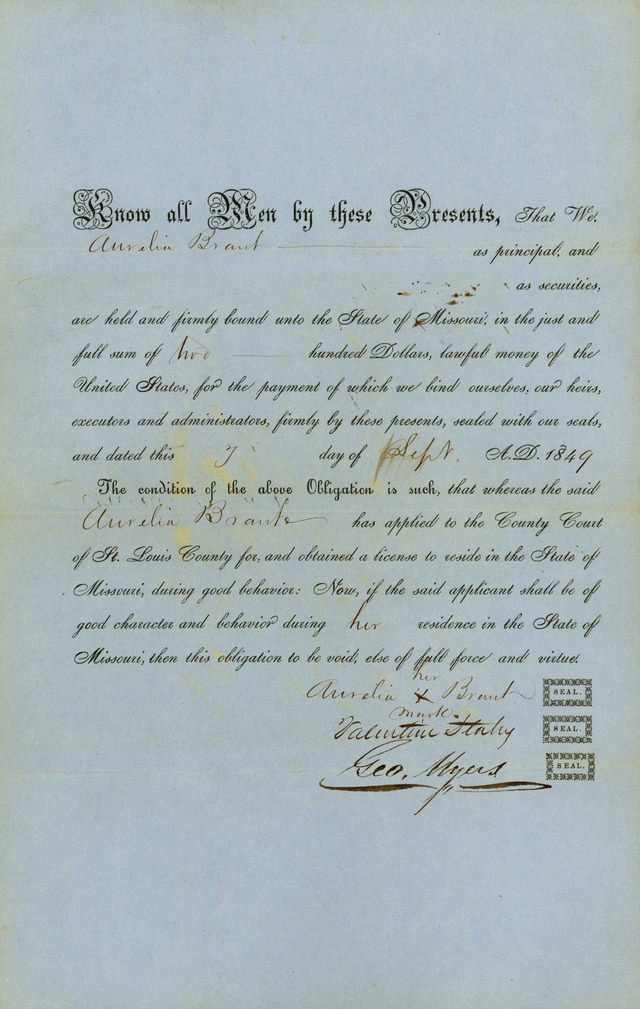 Know all Men by these Presents, That We,
Aurelia Brant as principal, and
as securities,
are held and firmly bound unto the State of Missouri, in the just and
full sum of two hundred Dollars, lawful money of the
United States, for the payment of which we bind ourselves, our heirs,
executors and administrators, firmly by these presents, sealed with our seals,
and dated this 7 day of Sept. A.D. 1849
The condition of the above Obligation is such, that whereas the said
Aurelia Brant has applied to the County Court
of St. Louis County for, and obtained a license to reside in the State of
Missouri, during good behavior: Now, if the said applicant shall be of
good character and behavior during her residence in the State of
Missouri, then this obligation to be void, else of full force and virtue.
her
Aurelia X Brant SEAL.
mark
Valentine SEAL.
Geo. Myers SEAL.